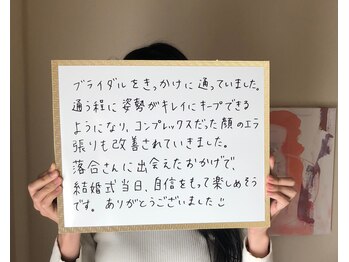 ブライダルをきっかけに通っていました。
通う程に姿勢がキレイにキープできる
ようになり、コンプレックスだった顔のエラ
張りも改善されていきました。
落合さんに出会えたおかげで、
結婚式当日、自信をもって楽しめそう
です。ありがとうございました